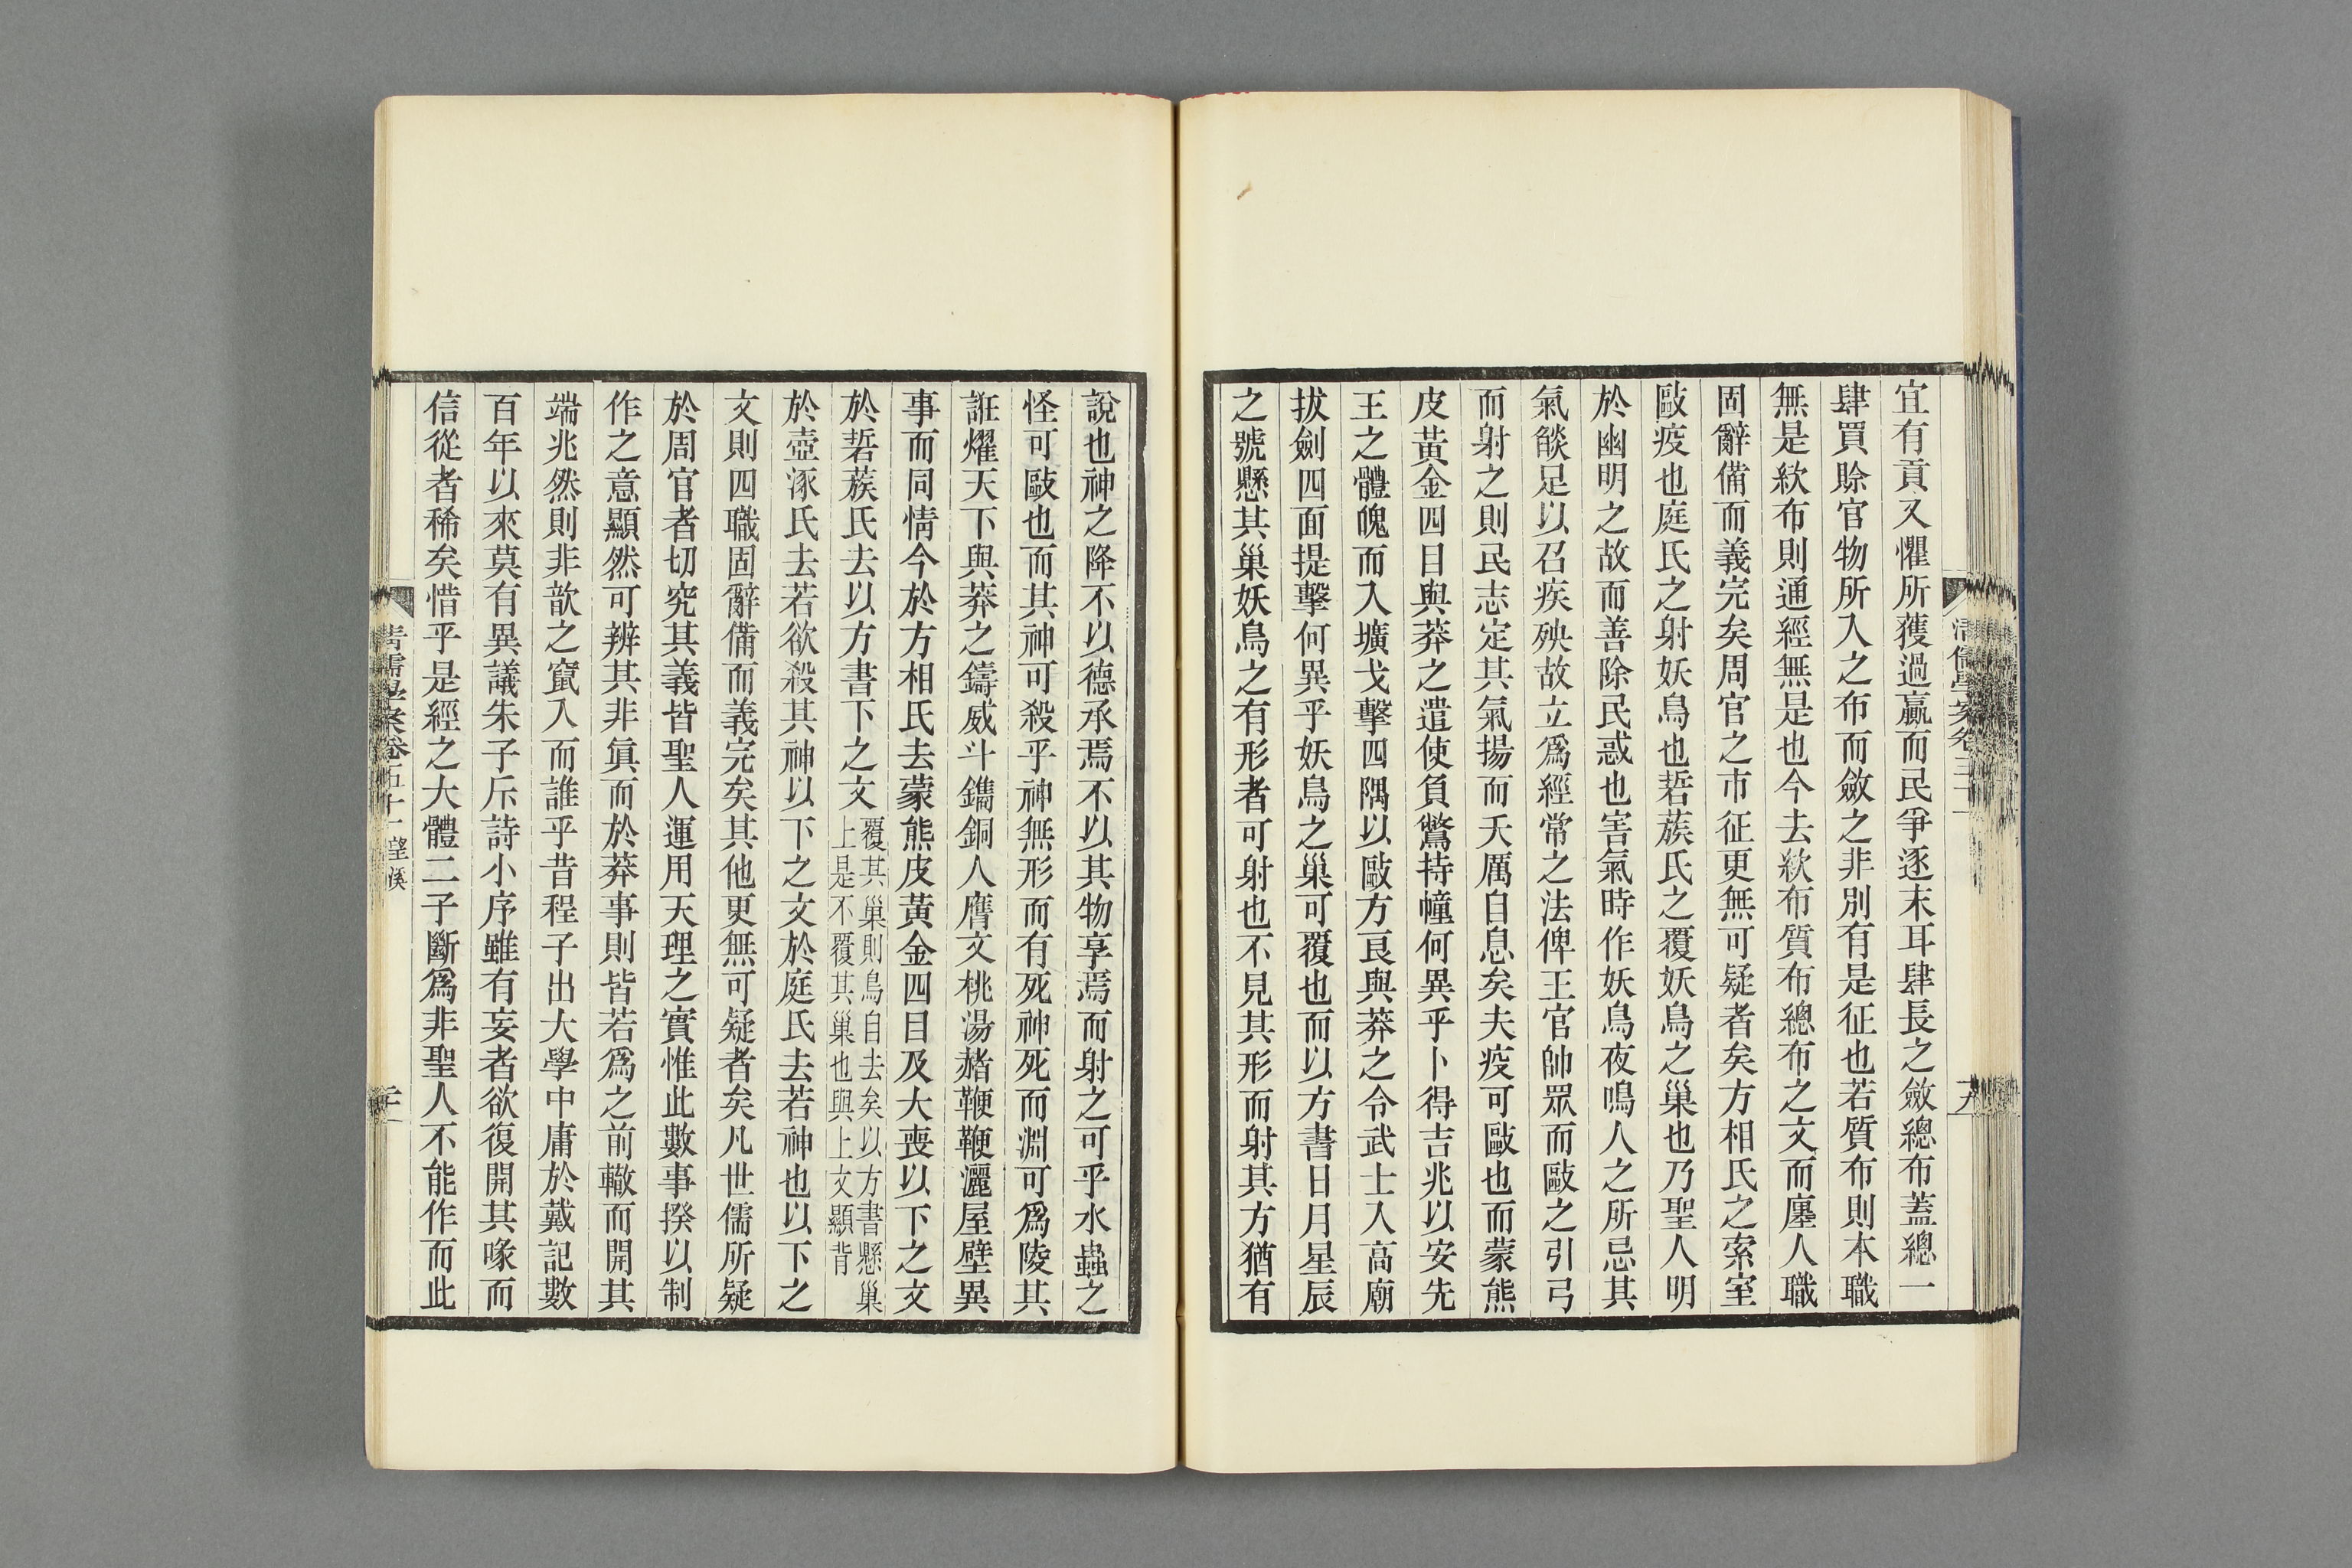 宜有貢又懼所獲過贏而民爭逐末耳肆長之斂總布蓋總一
肆買賒官物所入之布而斂之非別有是征也若質布則本職
無是紱布則通經無是也今去紱布質布總布之文而廛人職
固辭備而義完矣周官之市征更無可疑者矣方相氏之索室
毆疫也庭氏之射妖鳥也硩蔟氏之覆妖鳥之巢也乃聖人明
於幽明之故而善除民惑也害氣時作妖鳥夜鳴人之所忌其
氣燄足以召疾殃故立爲經常之法俾王官帥眾而毆之引弓
而射之則民志定其氣揚而夭厲自息矣夫疫可毆也而蒙熊
皮黃金四目與莽之遣使負鷩持幢何異乎卜得吉兆以安先
王之體魄而入壙戈擊四隅以毆方良與莽之令武士入高廟
拔劍四面提擊何異乎妖鳥之巢可覆也而以方書日月星辰
之號懸其巢妖鳥之有形者可射也不見其形而射其方猶有
說也神之降不以德承焉不以其物享焉而射之可乎水蟲之
怪可毆也而其神可殺乎神無形而有死神死而淵可爲陵其
誑燿天下與莽之鑄威斗鐫銅人膺文桃湯赭鞭鞭灑屋壁異
事而同情今於方相氏去蒙熊皮黃金四目及大喪以下之文
於硩蔟氏去以方書下之文覆其巢則鳥自去矣以方書懸巢
上是不覆其巢也與上文顯背
於壺涿氏去若欲殺其神以下之文於庭氏去若神也以下之
文則四職固辭備而義完矣其他更無可疑者矣凡世儒所疑
於周官者切究其義皆聖人運用天理之實惟此數事揆以制
作之意顯然可辨其非眞而於莽事則皆若爲之前轍而開其
端兆然則非歆之竄入而誰乎昔程子出大學中庸於戴記數
百年以來莫有異議朱子斥詩小序雖有妄者欲復開其喙而
信從者稀矣惜乎是經之大體二子斷爲非聖人不能作而此
清儒學案卷五十一 望溪